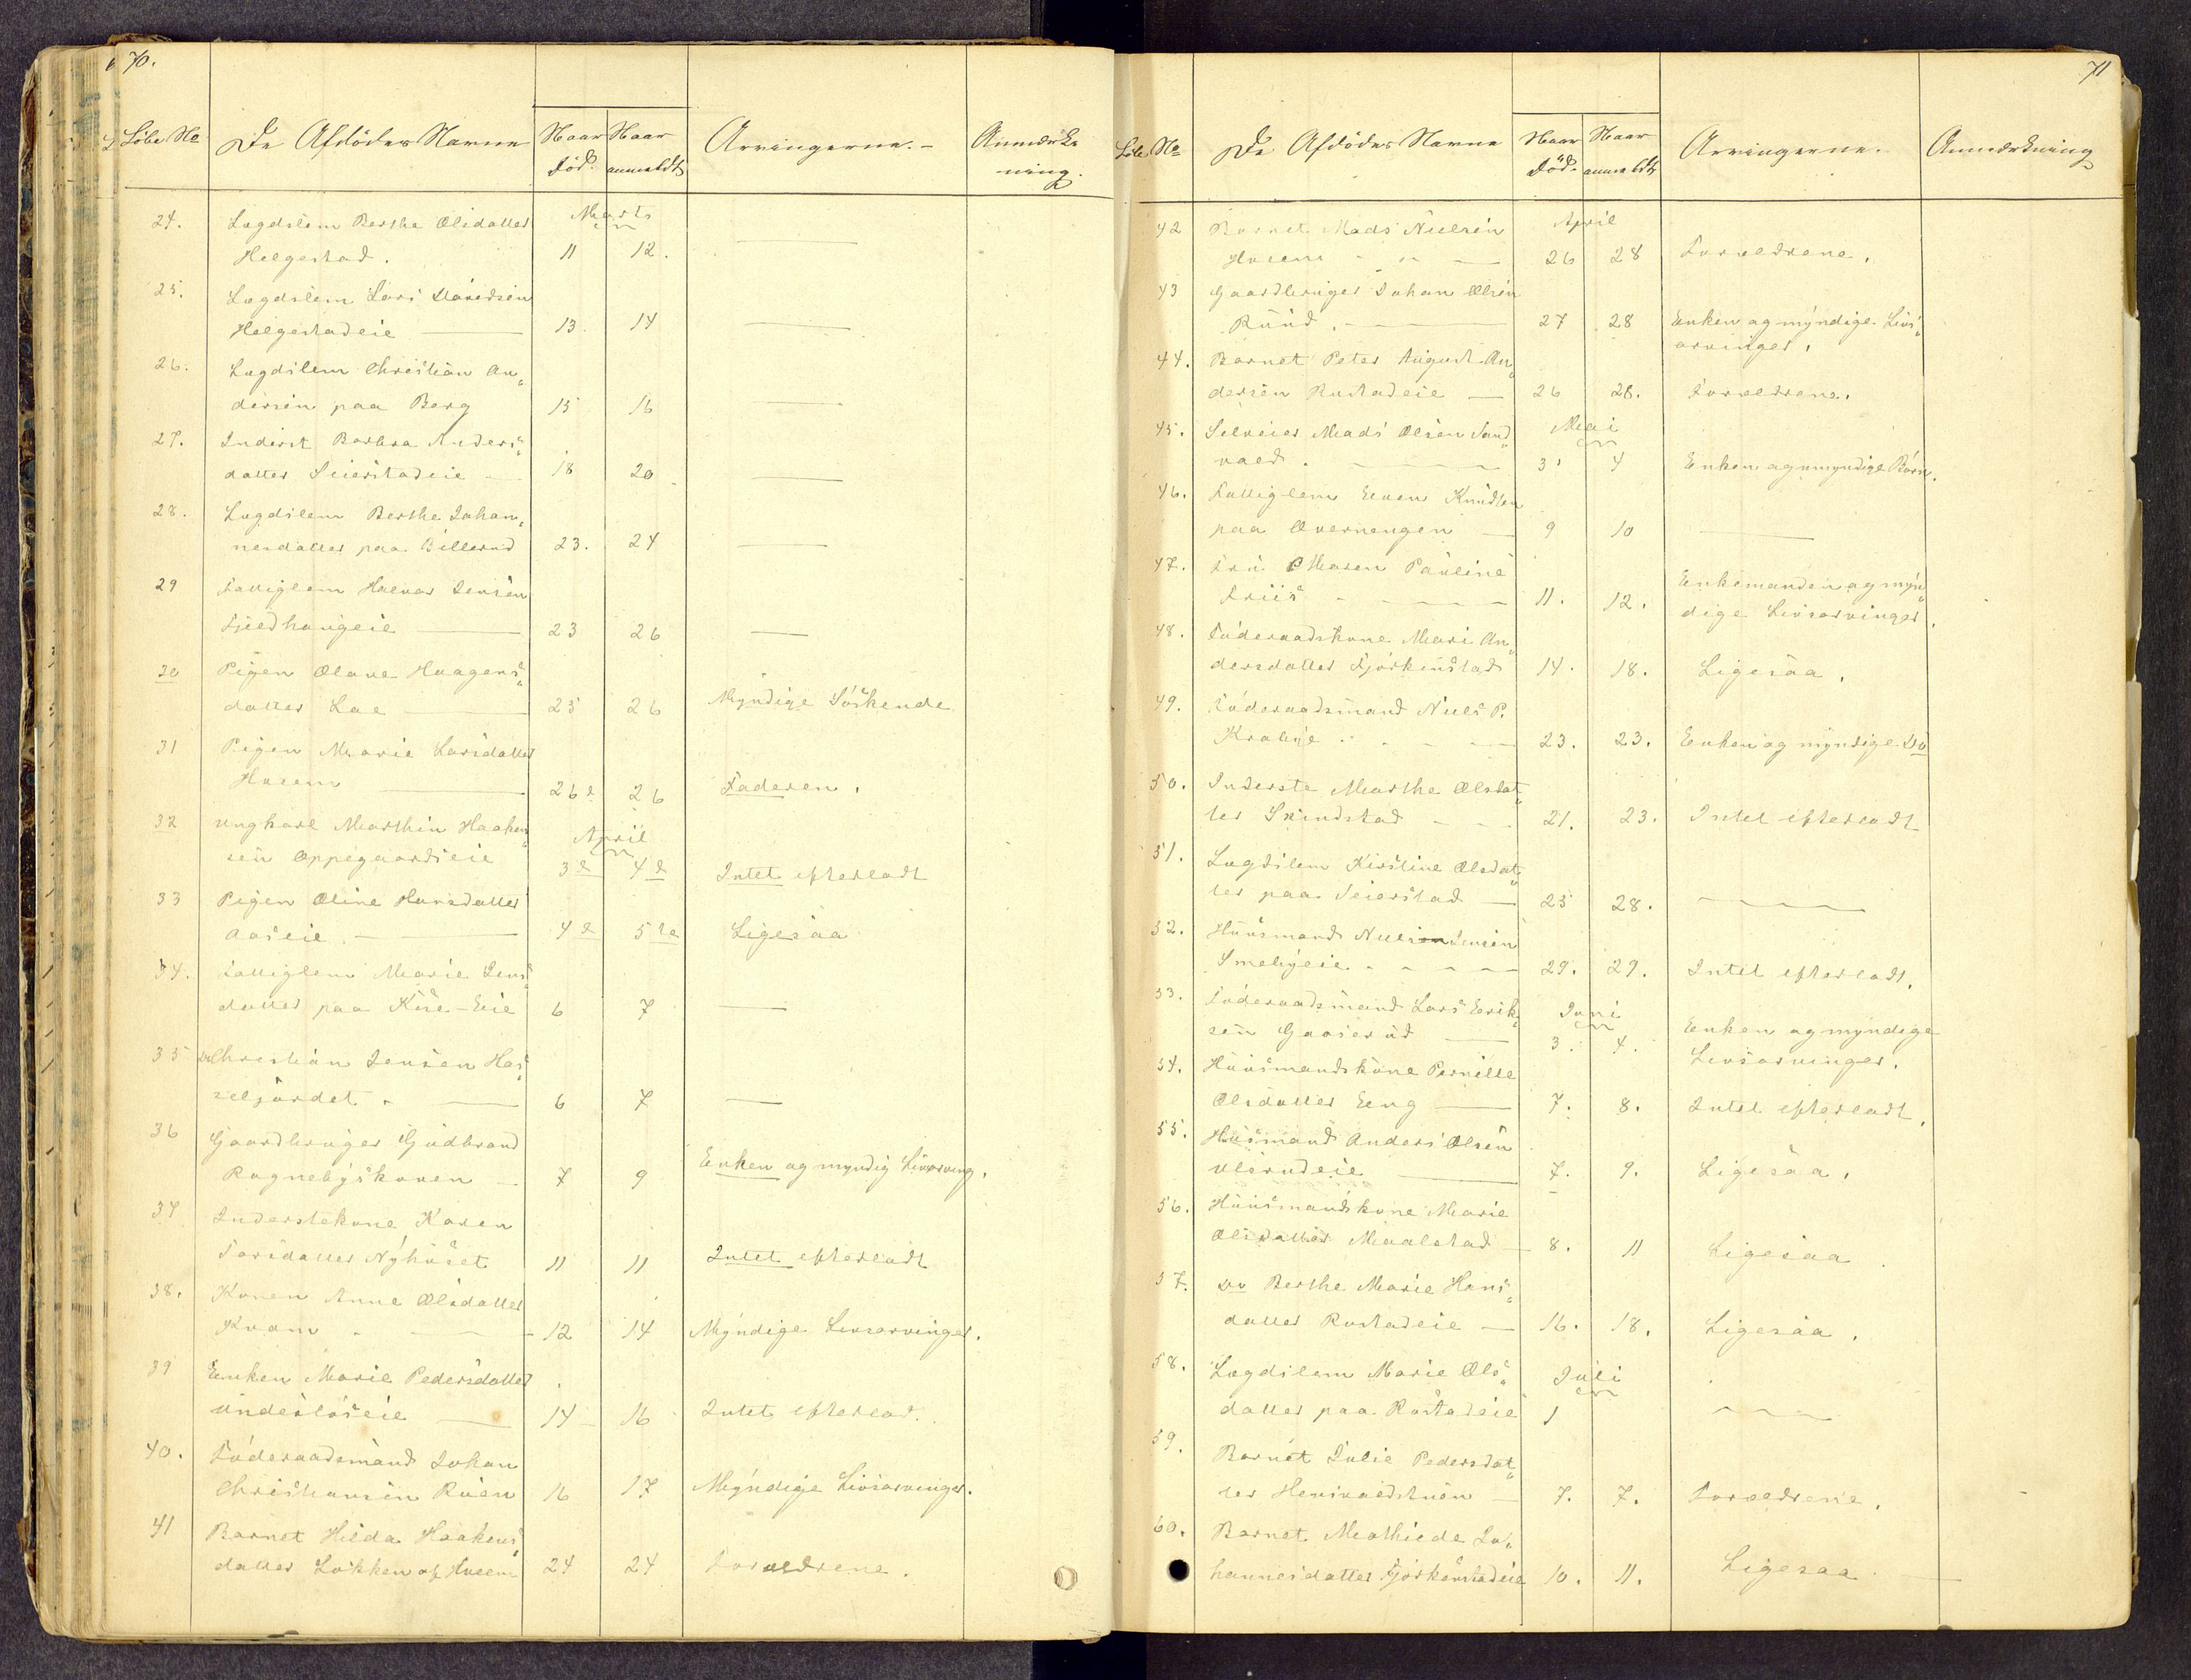 70.
Löbe No De Afdödes Navne Naar Död. Naar anmeldt Arvingerne.- Anmærkning.
24. Lægdslem Berthe Olsdatter Marts
Helgestad. 11 12.
25. Lægdslem Lars Davidsen
Helgestadeie 13. 14
26. Lægdslem Christian An„
dersen paa Berg 15 16
27. Inderst Barbra Anders„
datter Seierstadeie 18 20
28. Lægdslem Berthe Johan„
nesdatter paa Billerud 23. 24
29 Fattiglem Halvor Jensen
Fjeldhaugeie 23 26
30 Pigen Olave Haagens„
datter Lae 25 26 Myndige Söskende
31 Pigen Marie Larsdatter
Horem 26d 26 Faderen.
32 Ungkarl Marthin Haaken„ April
sen Oppegaardseie 3d 4d Intet efterladt
33 Pigen Oline Hansdatter
Aaseie 4d 5te Ligesaa
34. Fattiglem Marie Jens„
datter paa Kise-Eie 6 7
35 Do Christian Jensen Has„
seljordet. 6 7
36 Gaardbruger Gudbrand
Rognebyskoven 7 9 Enken og myndig Livsarving.
37 Inderstekone Karen
Larsdatter Nyhuset 11 11 Intet efterladt
38. Konen Anne Olsdatter
Kram 12 14 Myndige Livsarvinger.
39 Enken Marie Pedersdatter
Underlöseie 14 16 Intet efterlad.
40. Föderaadsmand Johan
Christiansen Ruen 16 17 Myndige Livsarvinger.
41 Barnet Hilda Haakens„
datter Lökken af 24 24 Forældrene.
71
Löbe No De Afdödes Navne Naar Död. Naar anmeldt Arvingerne. Anmærkning
42 Barnet Mads Nielsen April
Horem 26 28 Forældrene.
43 Gaardbruger Johan Olsen
Ruud. 27 28 Enken og myndige Livs„
arvinger.
44. Barnet Peter August An„
dersen Rustadeie 26 28. Forældrene.
45. Selveier Mads Olsen Sand„ Mai
vold. 3 4 Enken og umyndige Börn.
46. Fattiglem Even Knudsen
paa Overnengen 9 10
47. Fru Maren Pauline
Friis 11. 12. Enkemanden og myn„
dige Livsarvinger.
48. Föderaadskone Mari An„
dersdatter Fjörkenstad 14. 18. Ligesaa.
49. Föderaadsmand Niels P.
Krabye 23. 23. Enken og myndige Do
50. Inderste Marthe Olsdat„
ter Skindstad 21. 23. Intet efterladt
51. Lægdslem Kirstine Olsdat„
ter paa Seierstad 25 28.
52. Huusmand Niels Jensen
Smebyeie 29. 29. Intet efterladt.
53. Föderaadsmand Lars Erik„ Juni
sen Gaaserud 3. 4. Enken og myndige
Livsarvinger.
54. Huusmandskone Pernille
Olsdatter Eeng 7. 8. Intet efterladt.
55. Husmand Anders Olsen
Ulsrudeie 7. 9. Ligesaa.
56. Huusmandskone Marie
Olsdatter Maalstad 8. 11 Ligesaa
57. Do Berthe Marie Hans„
datter Rustadeie 16. 18. Ligesaa.
58. Lægdslem Marie Ols„ Juli
datter paa Rustadeie 1
59. Barnet Julie Pedersdat„
ter Henivoldstuen 7. 7. Forældrene.
60. Barnet Mathilde Jo„
hannesdatter Fjörkenstadeie 10. 11. Ligesaa